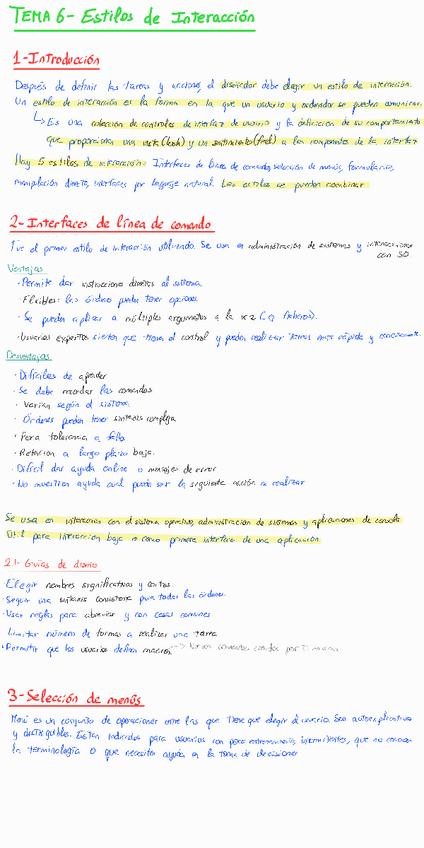 TEMA 6- Estilos de Interacción
1-Introducción
Después de definir las tareas y acciones, el diseñador debe elegir un estilo de interacción.
Un estilo de interacción es la forma en la que un usuario y ordenador se pueden comunicar.
↳ Es una colección de controles de interfaz de usuario y la definición de su comportamiento
que proporciona una vista (look) y un sentimiento (feel) a los componentes de la interfaz
Hay 5 estilos de interacción: Interfaces de línea de comando, selección de menús, formularios,
manipulación directa, interfaces por lenguaje natural. Los estilos se pueden combinar
2-Interfaces de línea de comando
Fue el primer estilo de interacción utilizado. Se usa en administración de sistemas y interacciones
con SO
Ventajas
· Permite dar instrucciones directas al sistema.
· Flexibles: las órdenes pueden tener opciones.
· Se pueden aplicar a múltiples argumentos a la vez
· Usuarios expertos sienten que tienen el control y pueden realizar tareas más rápida y
Desventajas
· Difíciles de aprender
· Se debe recordar los comandos
· Varían según el sistema
· Órdenes pueden tener sintaxis compleja
· Poca tolerancia a fallo
· Retención a largo plazo baja.
· Difícil dar ayuda online o mensajes de error
· No muestran ayuda cuál puede ser la siguiente acción a realizar
Se usa en interacción con el sistema operativo, administración de sistemas y aplicaciones de consola
Útil para interacción baja o como primera interfaz de una aplicación.
2.1- Guías de diseño
· Elegir nombres significativos y cortos.
· Seguir una sintaxis consistente para todas las órdenes.
· Usar reglas para abreviar y con cosas comunes
· Limitar número de formas a realizar una tarea
· Permitir que los usuarios definan macros → Varios comandos creados por macro
3-Selección de menús
Menú es un conjunto de operaciones entre las que tiene que elegir el usuario. Son autoexplicativos
y distinguibles. Están indicados para usuarios con poco entrenamiento, intermitentes, que no conocen
la terminología o que necesiten ayuda en la toma de decisiones